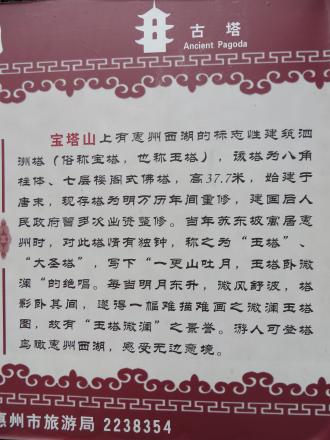 古塔
Ancient Pagoda
宝塔山上有惠州西湖的标志性建筑泗
洲塔（俗称宝塔，也称玉塔），该塔为八角
柱体、七层楼阁式佛塔，高37.7米，始建于
唐末，现存塔为明万历年间重修，建国后人
民政府曾多次出资整修。当年苏东坡寓居惠
州时，对此塔情有独钟，称之为“玉塔”、
“大圣塔”，写下“一更山吐月，玉塔卧微
澜”的绝唱。每当明月东升，微风舒波，塔
影卧其间，遂得一幅难描难画之微澜玉塔
图，故有“玉塔微澜”之景誉。游人可登塔
鸟瞰惠州西湖，感受无边意境。
惠州市旅游局 2238354